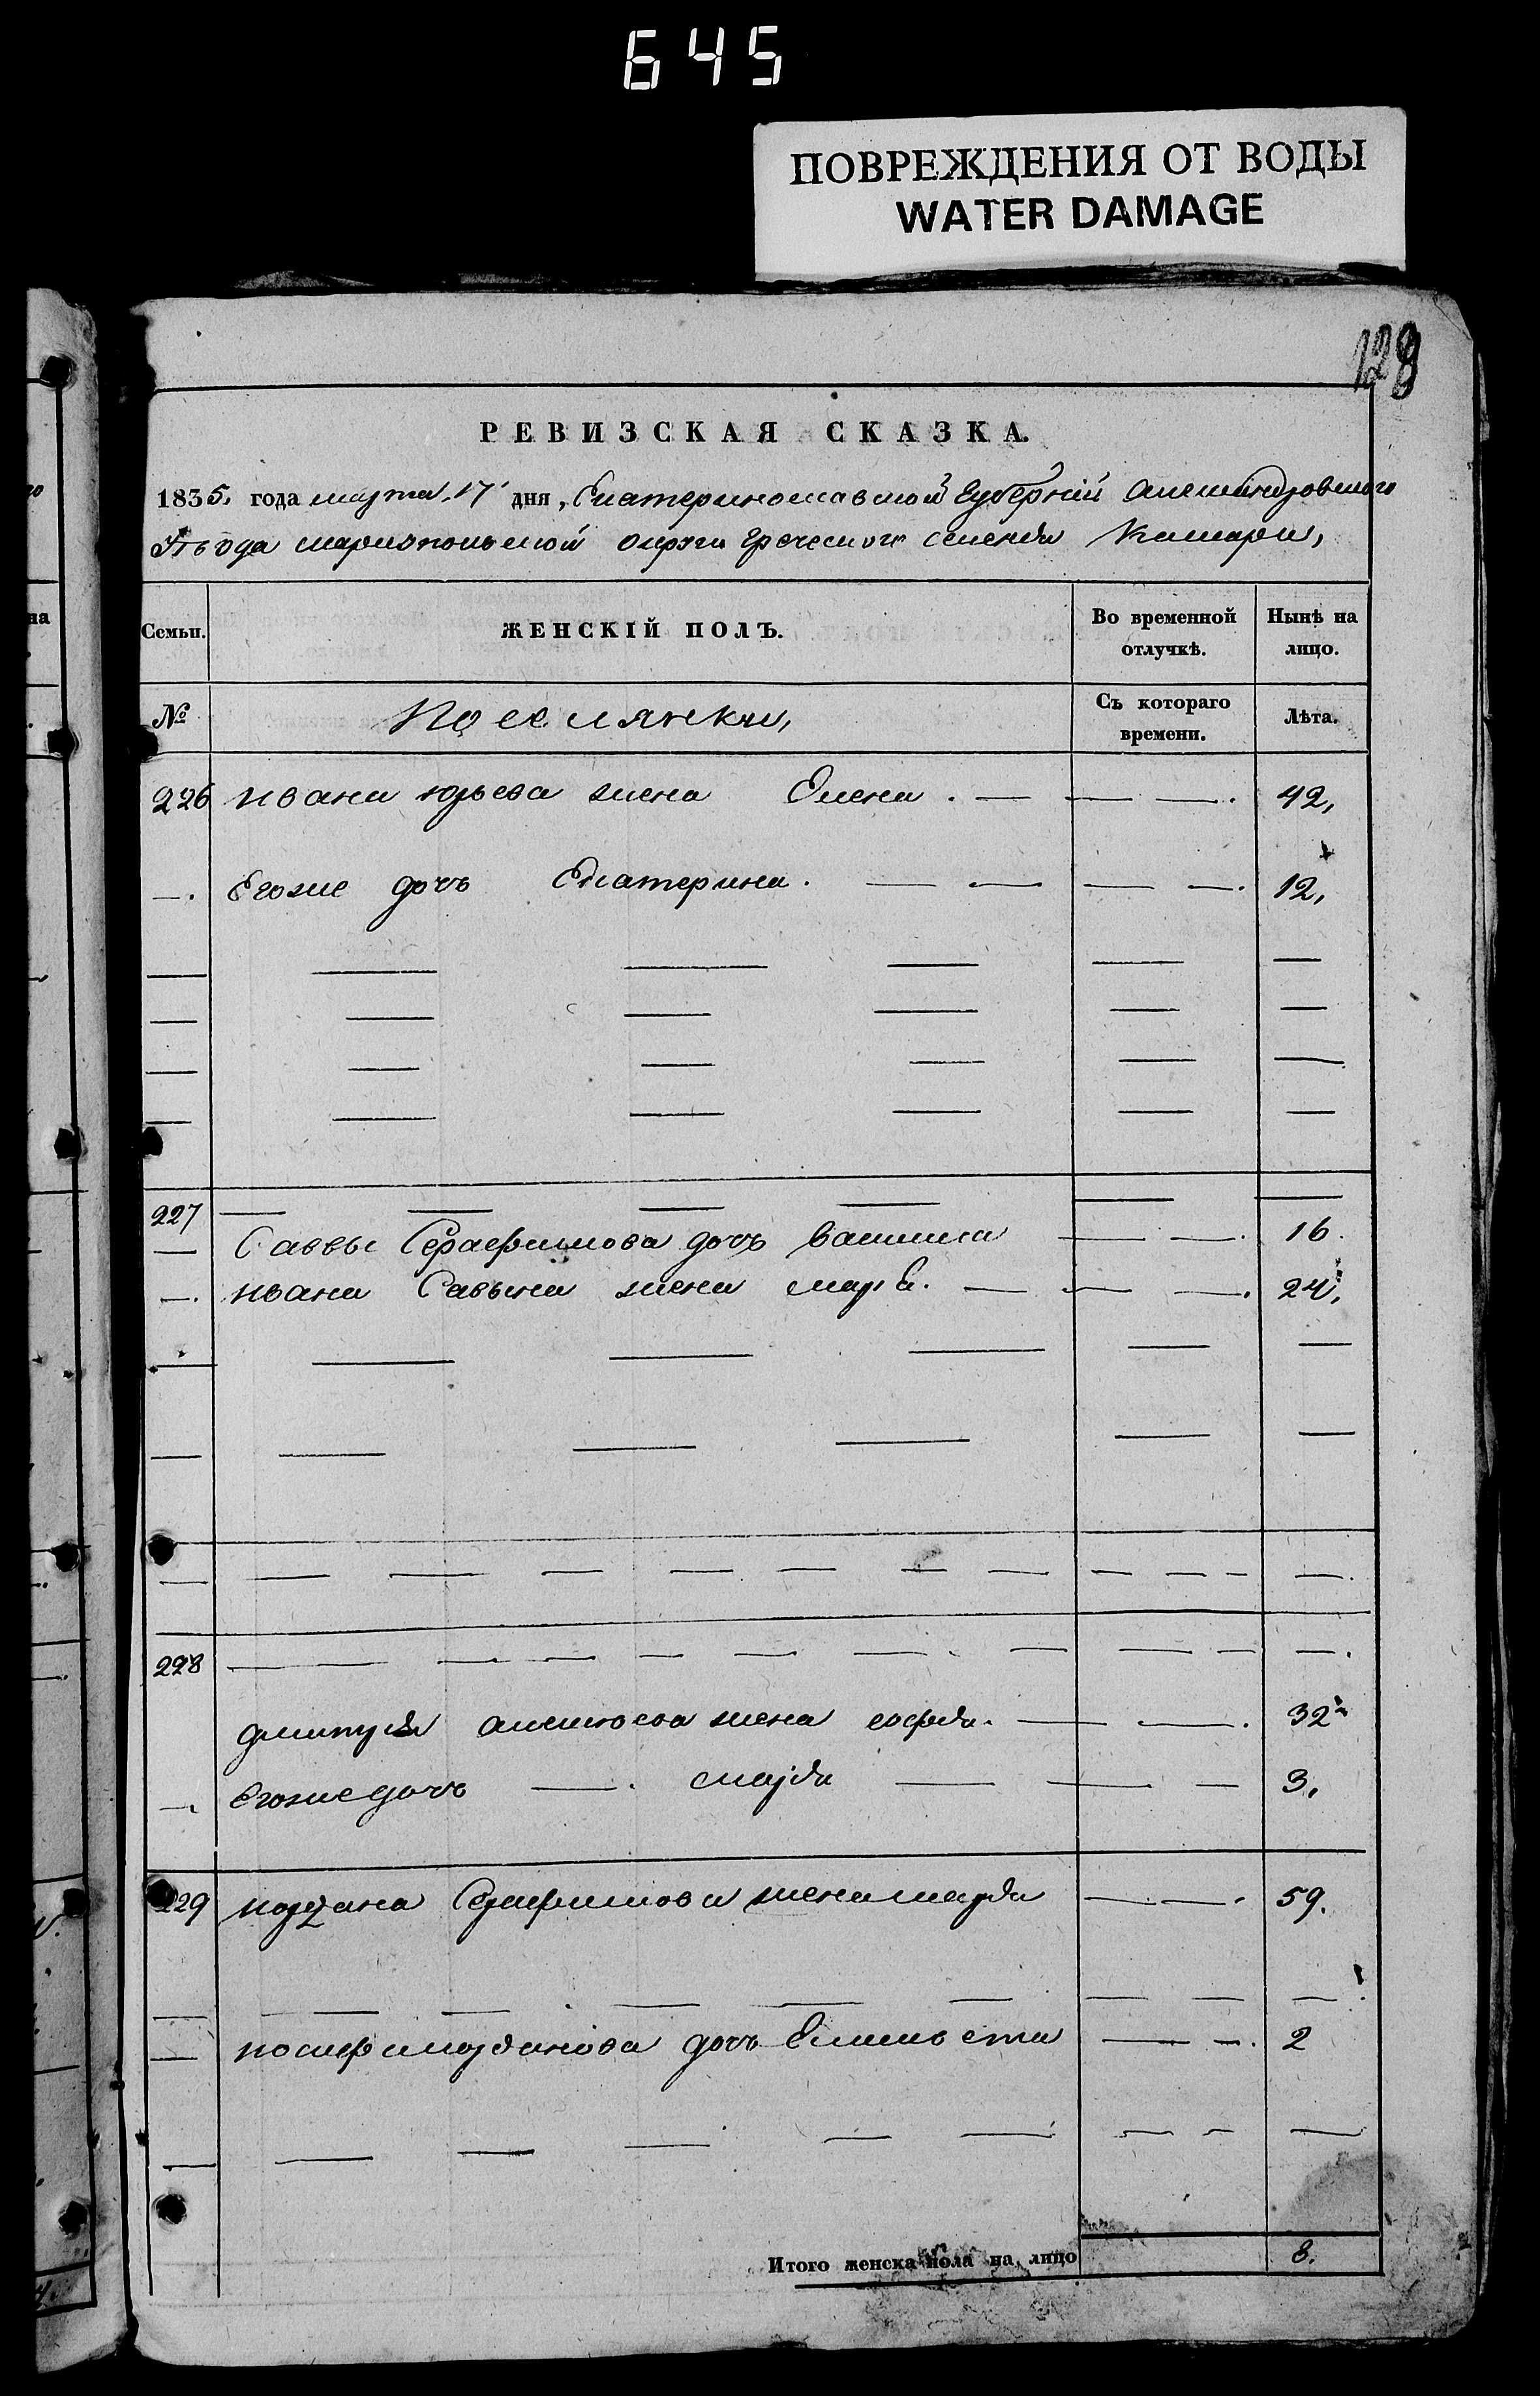 645
ПОВРЕЖДЕНИЯ ОТ ВОДЫ
WATER DAMAGE
128
РЕВИЗСКАЯ СКАЗКА.
1835. года марта 17 дня, Екатеринославской Губерніи Александровского
Уѣзда мариопольской округи греческого селенія
Семьи. ЖЕНСКІЙ ПОЛЪ. Во временной отлучкѣ. Нынѣ на лицо.
№ Поселянки, Съ котораго времени. Лѣта.
226 ивана юрьева жена Елена. — — —. 42,
—. Егоже дочь Екатерина. — — — —. 12,
227
— Саввы Серафимова дочь василиса — —. 16.
—. ивана Савина жена — — —. 24,
228
дмитрия алексеева жена софия. — —. 32
—. Егоже дочь —. марія — — — 3,
229 иордана Серафимова жена марія — —. 59.
— иосифа иорданова дочь Елисавета — —. 2
Итого женска пола на лицо 8.